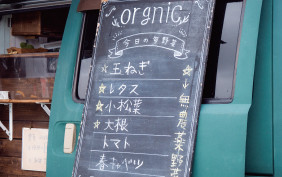 orgnic
今日の葉野菜
☆玉ねぎ
☆レタス
☆小松菜
☆大根
トマト
春キャベツ
☆→無農薬野菜